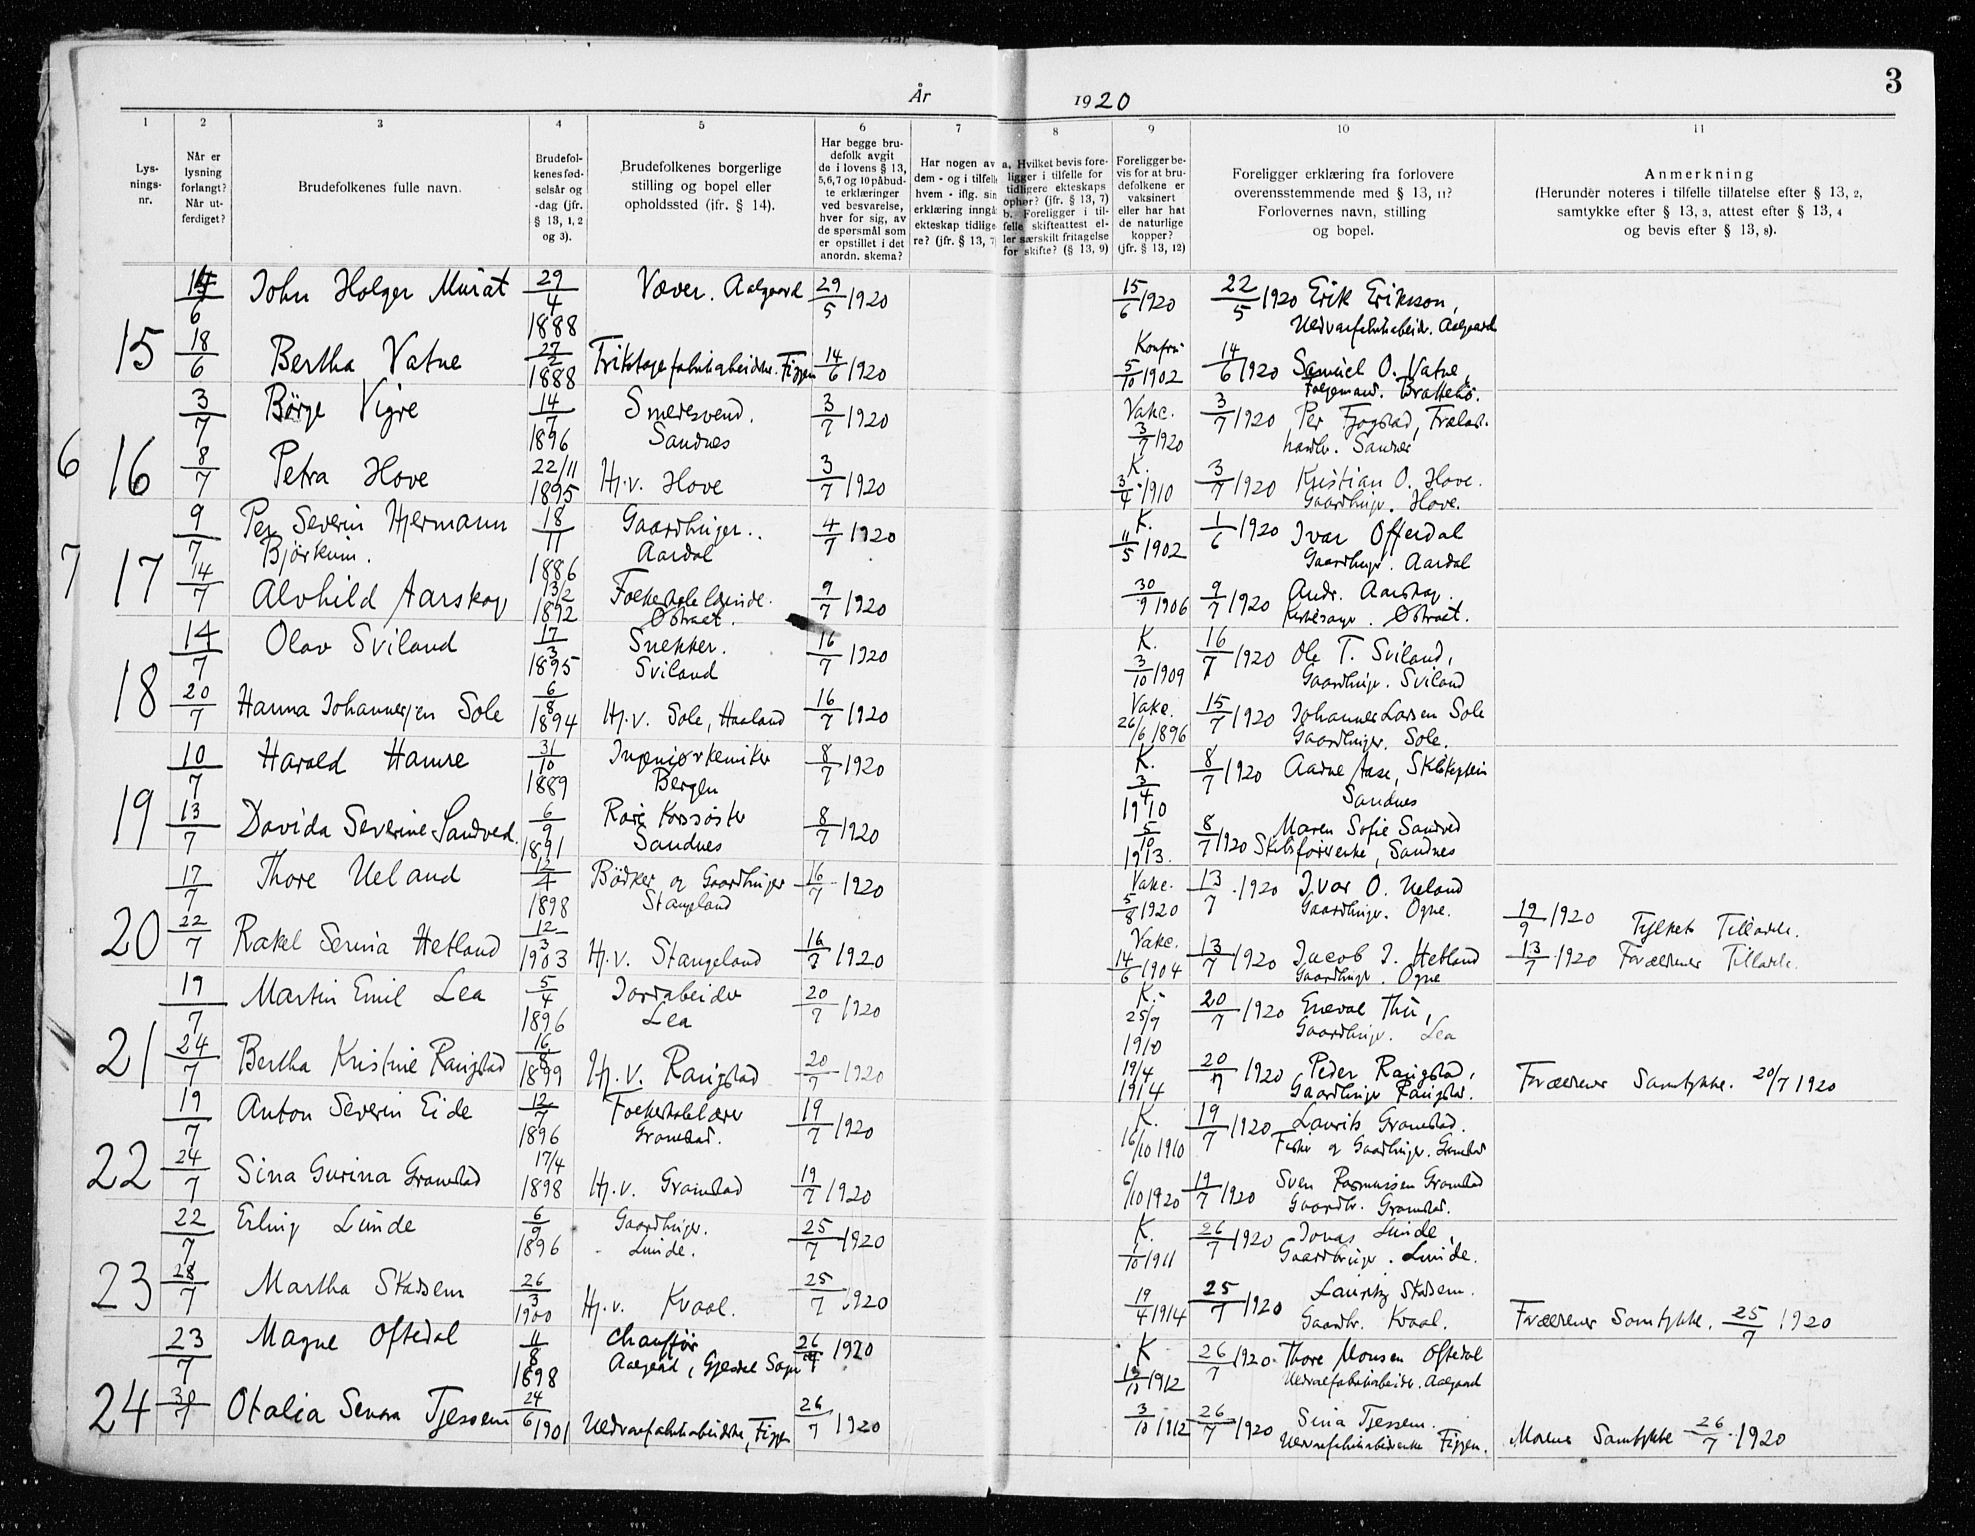 År 1920
3
1 2 3 4 5 6 7 8 9 10 11
Lysningsnr.
Når er lysning forlangt? Når utferdiget?
Brudefolkenes fulle navn.
Brudefolkenes fødselsår og -dag (jfr. § 13, 1, 2 og 3).
Brudefolkenes borgerlige stilling og bopel eller opholdssted (jfr. § 14).
Har begge brudefolk avgit de i lovens § 13, 5,6,7 og 10 påbudte erklæringer ved besvarelse, hver for sig, av de spørsmål som er opstillet i det anordn. skema?
Har nogen av dem - og i tilfelle hvem - iflg. sin erklæring inngå ekteskap tidligere? (jfr. § 13, 7
a. Hvilket bevis foreligger i tilfelle for tidligere ekteskaps ophør? (jfr. § 13, 7) b. Foreligger i tilfelle skifteattest eller særskilt fritagelse for skifte? (§ 13, 9)
Foreligger bevis for at brudefolkene er vaksinert eller har hat de naturlige kopper? (jfr. § 13, 12)
Foreligger erklæring fra forlovere overensstemmende med § 13, 11? Forlovernes navn, stilling og bopel.
Anmerkning (Herunder noteres i tilfelle tillatelse efter § 13, 2, samtykke efter § 13, 3, attest efter § 13, 4 og bevis efter § 13, 8).
John Holger Murat 29/4 1888 Væver. Aalgaard 29/5 1920 15/6 1920 22/5 1920 Erik Eriksson,
Uldvarefabrikarbeider. Aalgaard
15 18/6 Bertha Vatne 27/2 1888 Trikotagefabrikarbeiderske. Figgen 14/6 1920 5/10 1902 14/6 1920 Samuel O. Vatne,
3/7 Börge Vigre 14/7 1896 Smedesvend. Sandnes 3/7 1920 Vakc. 3/7 1920 3/7 1920 Per Fjogstad, Trælast-
handler. Sandnes
6 16 8/7 Petra Hove 22/11 1895 Hj.v. Hove 3/7 1920 K. 3/4 1910 3/7 1920 Kristian O. Hove.
Gaardbruger. Hove.
9/7 Per Severin Hjermann Bjørkum. 18/11 1886 Gaardbruger. Aardal 4/7 1920 K. 11/5 1902 1/6 1920 Ivar Offerdal
Gaardbruger. Aardal
7 17 14/7 Alvhild Aarskog 13/2 1892 Østraat. 9/7 1920 30/9 1906 9/7 1920 Andr. Aarskog.
Kirkesanger. Østraat.
14/7 Olav Sviland 17/3 1895 Snekker. Sviland 16/7 1920 K. 3/10 1909 16/7 1920 Ole T. Sviland,
Gaardbruger. Sviland
18 20/7 Hanna Johannesen Sole 6/8 1894 Hj.v. Sole, Haaland 16/7 1920 Vakc. 26/6 1896 15/7 1920 Johannes Larsen Sole
Gaardbruger. Sole.
10/7 Harald Hamre 31/10 1889 Ingeniørkemiker Bergen 8/7 1920 K. 3/4 1910 8/7 1920 Aadne Aase, Skibskaptein
Sandnes
19 13/7 Davida Severine Sandved. 6/9 1891 Røde Korssøster Sandnes 8/7 1920 5/10 1913. 8/7 1920 Maren Sofie Sandved
Skibsførerenke, Sandnes
17/7 Thore Ueland 12/4 1898 Bödker og Gaardbruger Stangeland 16/7 1920 Vakc. 5/8 1920 13/7 1920 Ivar O. Ueland
Gaardbruger. Ogne. 19/9 1920 Fylkets Tilladelse.
20 22/7 Rakel Serina Hetland 12/3 1903 Hj.v. Stangeland 16/7 1920 Vakc. 14/6 1904 13/7 1920 Jacob J. Hetland
Gaardbruger. Ogne 13/7 1920 Forældrenes Tilladelse.
19/7 Martin Emil Lea 5/4 1896 Jordarbeider Lea 20/7 1920 K. 25/9 1910 20/7 1920 Eneval Thu,
Gaardbruger. Lea
21 24/7 Bertha Kristine Raugstad 16/8 1899 Hj.v. Raugstad 20/7 1920 19/4 1914 20/7 1920 Peder Raugstad,
Gaardbruger Raugstad. Forældrenes Samtykke. 20/7 1920
19/7 Anton Severin Eide 12/7 1896 Folkeskolelærer Gramstad. 19/7 1920 K. 16/10 1910 19/7 1920 Laurits Gramstad.
Fisker og Gaardbruger. Gramstad
22 24/7 Sina Gurina Gramstad 17/4 1898 Hj.v. Gramstad 19/7 1920 6/10 1920 19/7 1920 Sven Rasmussen Gramstad
Gaardbr. Gramstad.
22/7 Erling Lunde 6/9 1896 Gaardbruger. Lunde. 25/7 1920 K. 1/10 1911 26/7 1920 Jonas Lunde,
Gaardbruger. Lunde.
23 28/7 Martha Skadsem 26/3 1900 Hj.v. Kvaal. 25/7 1920 19/4 1914 25/7 1920 Lauritz Skadsem.
Gaardbr. Kvaal. Forældrenes Samtykke. 25/7 1920
23/7 Magne Oftedal 11/8 1898 Chauffør Aalgaard, Gjesdal Sogn 26/7 1920 K 1912 26/7 1920 Thore Monsen Oftedal
Uldvarefabrikarbeider. Aalgaard
24 30/7 Otalia Serina Tjessem 24/6 1901 Uldvarefabrikarbeiderske, Figgen 26/7 1920 3/10 1912 26/7 1920 Sina Tjessem.
Uldvarefabrikarbeiderenke Figgen. Moderens Samtykke 26/7 1920